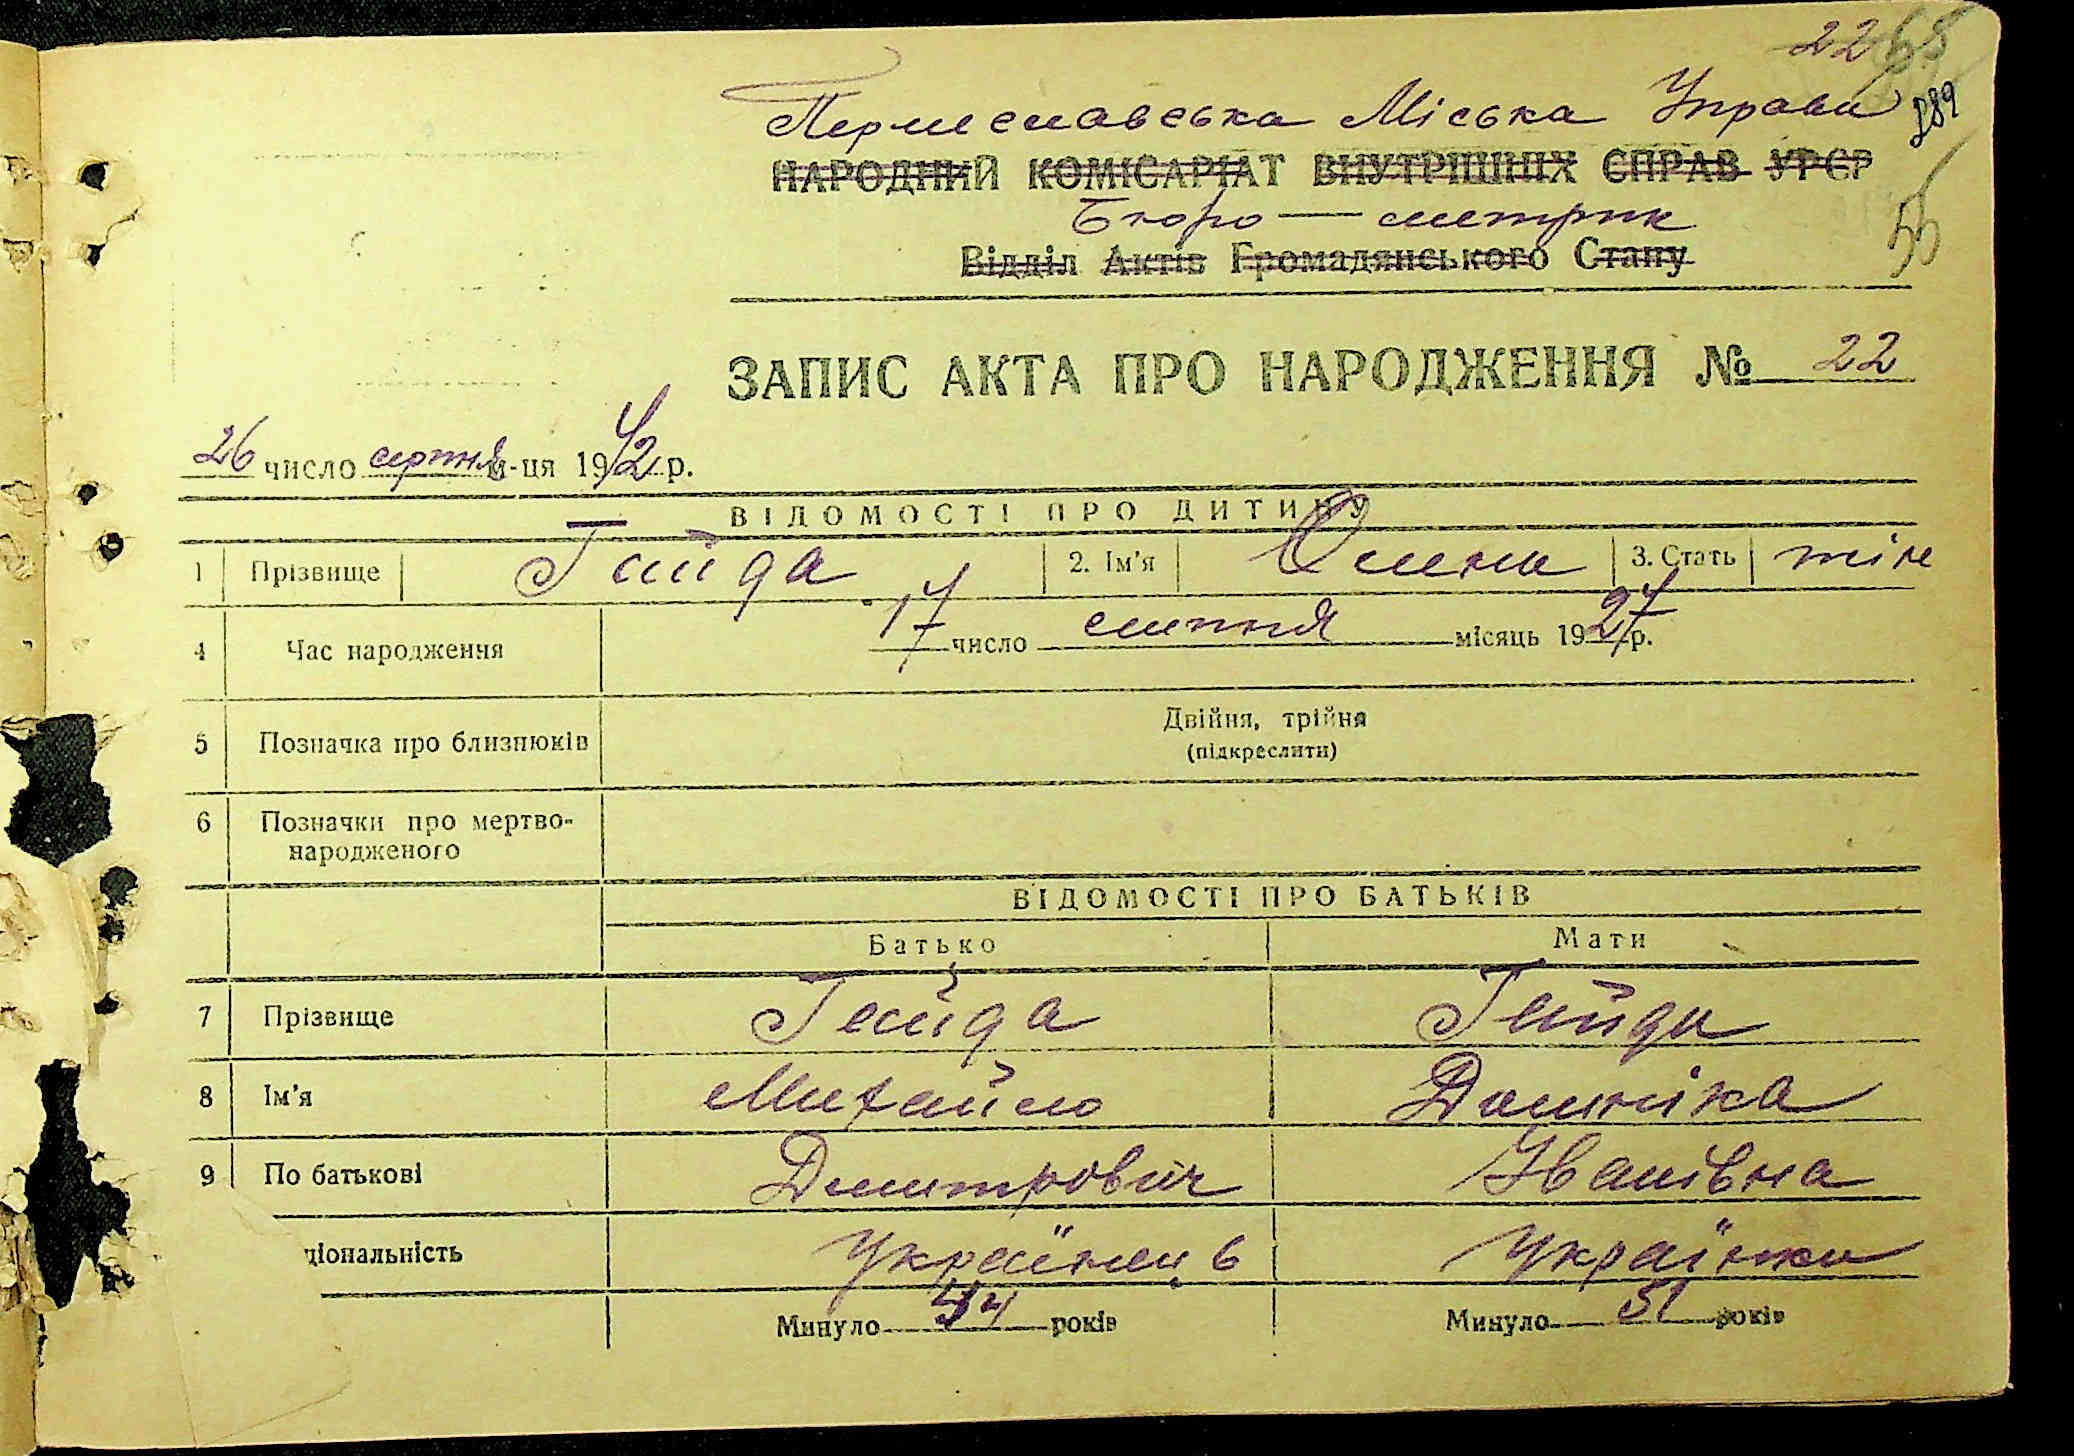 22 68
Переяславська Міська Управа
389
НАРОДНИЙ КОМІСАРІАТ ВНУТРІШНІХ СПРАВ УРСР
Бюро — метрик
56
Відділ Актів Громадянського Стану
ЗАПИС АКТА ПРО НАРОДЖЕННЯ № 22
26 число серпня м-ця 1942 р.
ВІДОМОСТІ ПРО ДИТИНУ
1 Прізвище Гайда 2. Ім'я Олена 3. Стать жіне
4 Час народження 17 число липня місяць 1927 р.
5 Позначка про близнюків Двійня, трійня
(підкреслити)
6 Позначки про мертво-
народженого
ВІДОМОСТІ ПРО БАТЬКІВ
Батько Мати
7 Прізвище Гайда Гайда
8 Ім'я Михайло Домніка
9 По батькові Дмитрович Іванівна
ціональність Українець Українка
Минуло 54 років Минуло 51 років